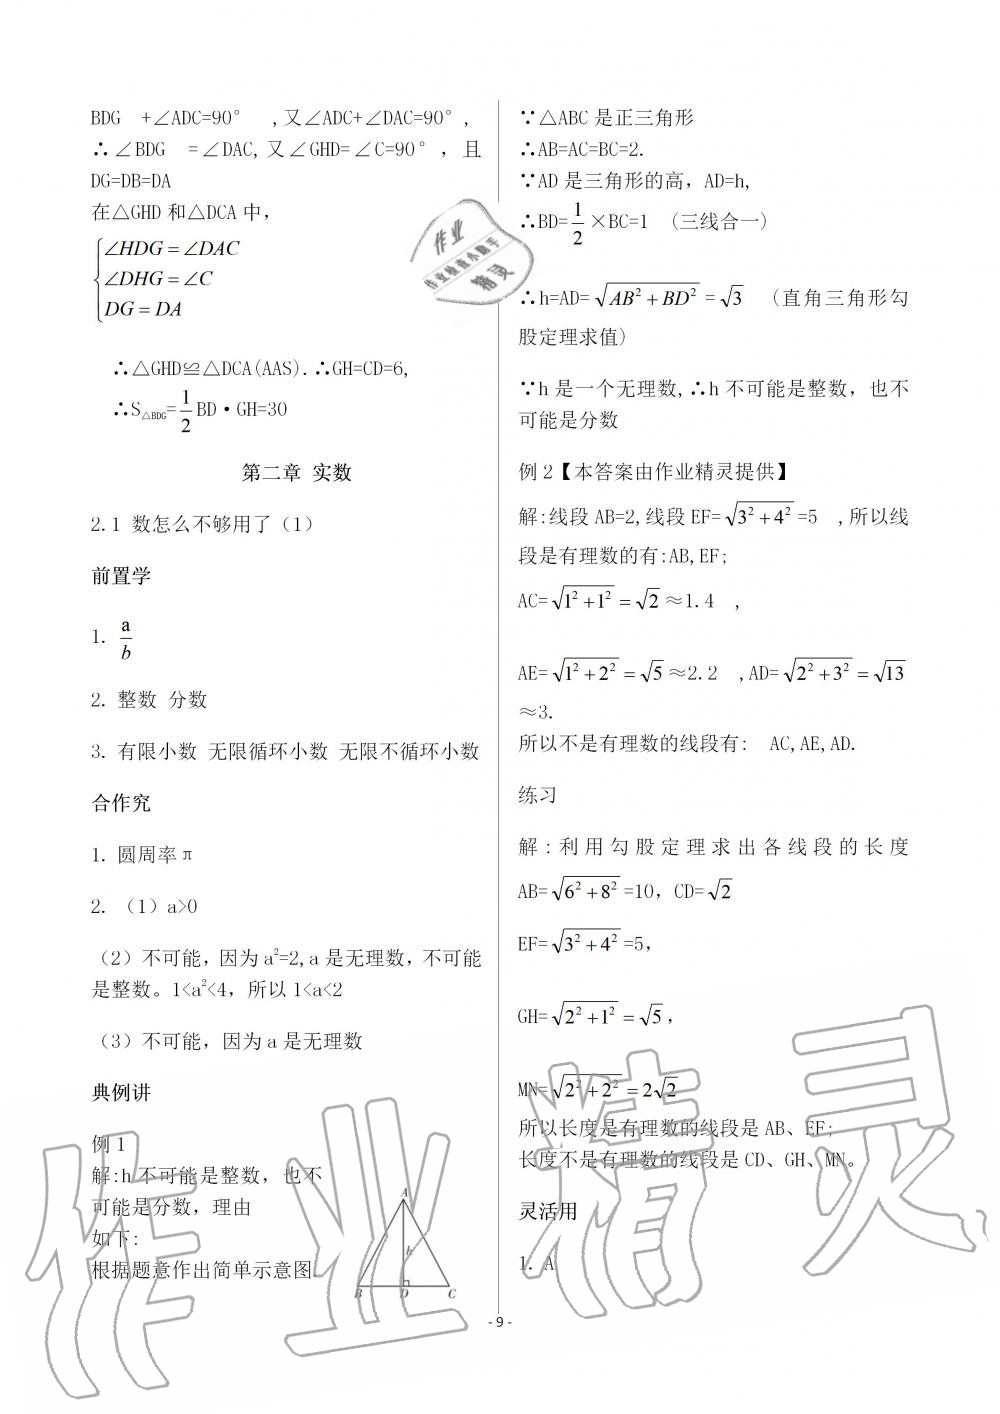 BDG +∠ADC=90° ,又∠ADC+∠DAC=90°,
∴∠BDG =∠DAC,又∠GHD=∠C=90°，且
DG=DB=DA
在△GHD 和△DCA 中,
∠HDG=∠DAC
∠DHG=∠C
DG=DA
∴△GHD≌△DCA(AAS).∴GH=CD=6,
∴S△BDG=1/2 BD·GH=30
第二章 实数
2.1 数怎么不够用了（1）
前置学
1. a/b
2. 整数 分数
3. 有限小数 无限循环小数 无限不循环小数
合作究
1. 圆周率π
2.（1）a>0
（2）不可能，因为a²=2,a 是无理数，不可能
是整数。1<a²<4，所以 1<a<2
（3）不可能，因为 a 是无理数
典例讲
例 1
解:h 不可能是整数，也不
可能是分数，理由
如下:
根据题意作出简单示意图
A
h
B D C
∵△ABC 是正三角形
∴AB=AC=BC=2.
∵AD 是三角形的高，AD=h,
∴BD=1/2×BC=1 (三线合一)
∴h=AD=√(AB²+BD²)=√3 (直角三角形勾
股定理求值)
∵h 是一个无理数,∴h 不可能是整数，也不
可能是分数
例 2【本答案由作业精灵提供】
解:线段 AB=2,线段 EF=√(3²+4²)=5 ,所以线
段是有理数的有:AB,EF;
AC=√(1²+1²)=√2≈1.4 ,
AE=√(1²+2²)=√5≈2.2 ,AD=√(2²+3²)=√13
≈3.
所以不是有理数的线段有: AC,AE,AD.
练习
解:利用勾股定理求出各线段的长度
AB=√(6²+8²)=10，CD=√2
EF=√(3²+4²)=5，
GH=√(2²+1²)=√5，
MN=√(2²+2²)=2√2
所以长度是有理数的线段是 AB、EF;
长度不是有理数的线段是 CD、GH、MN。
灵活用
1. A
-9-
作业
作业检查小助手
精灵
作业精灵